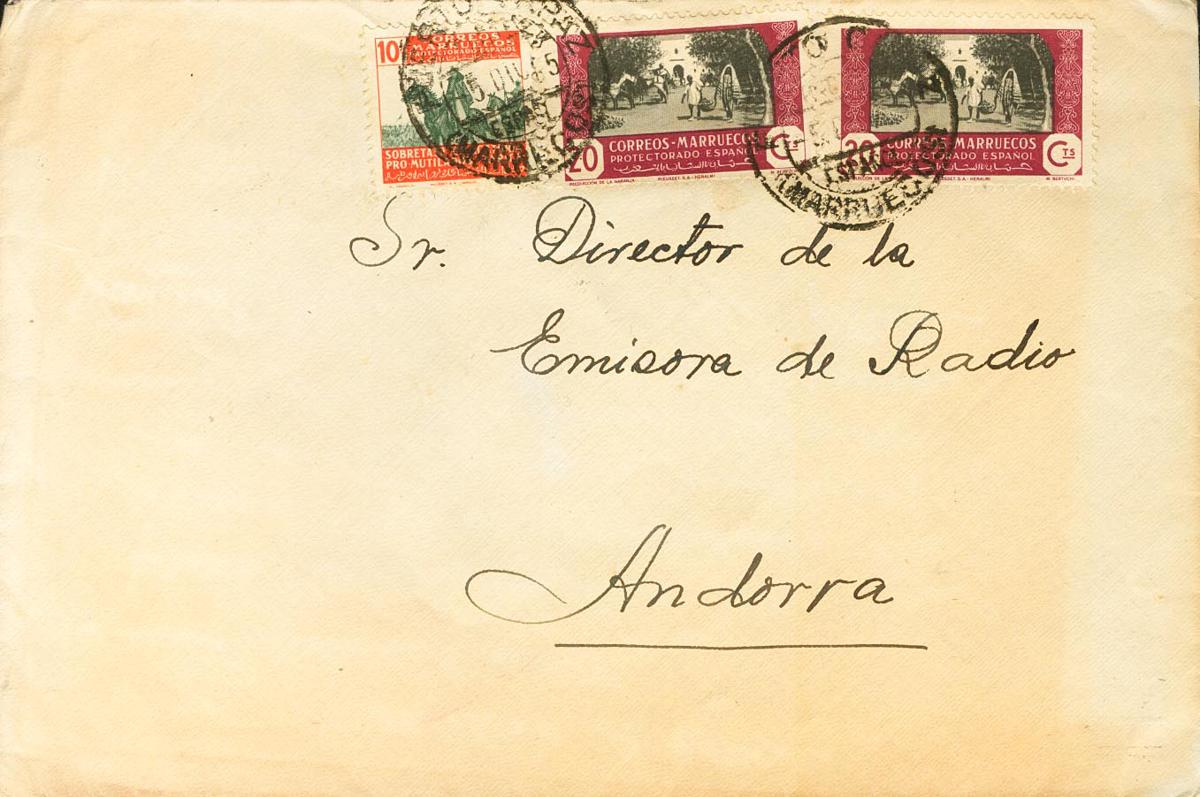 10
CORREOS
MARRUECOS
PROTECTORADO ESPAÑOL
SOBRETA
PRO-MUTIL
MARRUECOS
20
CORREOS-MARRUECOS
PROTECTORADO ESPAÑOL
CTS
20
CORREOS-MARRUECOS
PROTECTORADO ESPAÑOL
CTS
M. BERTUCHI
(MARRUECOS)
Sr. Director de la
Emisora de Radio
Andorra